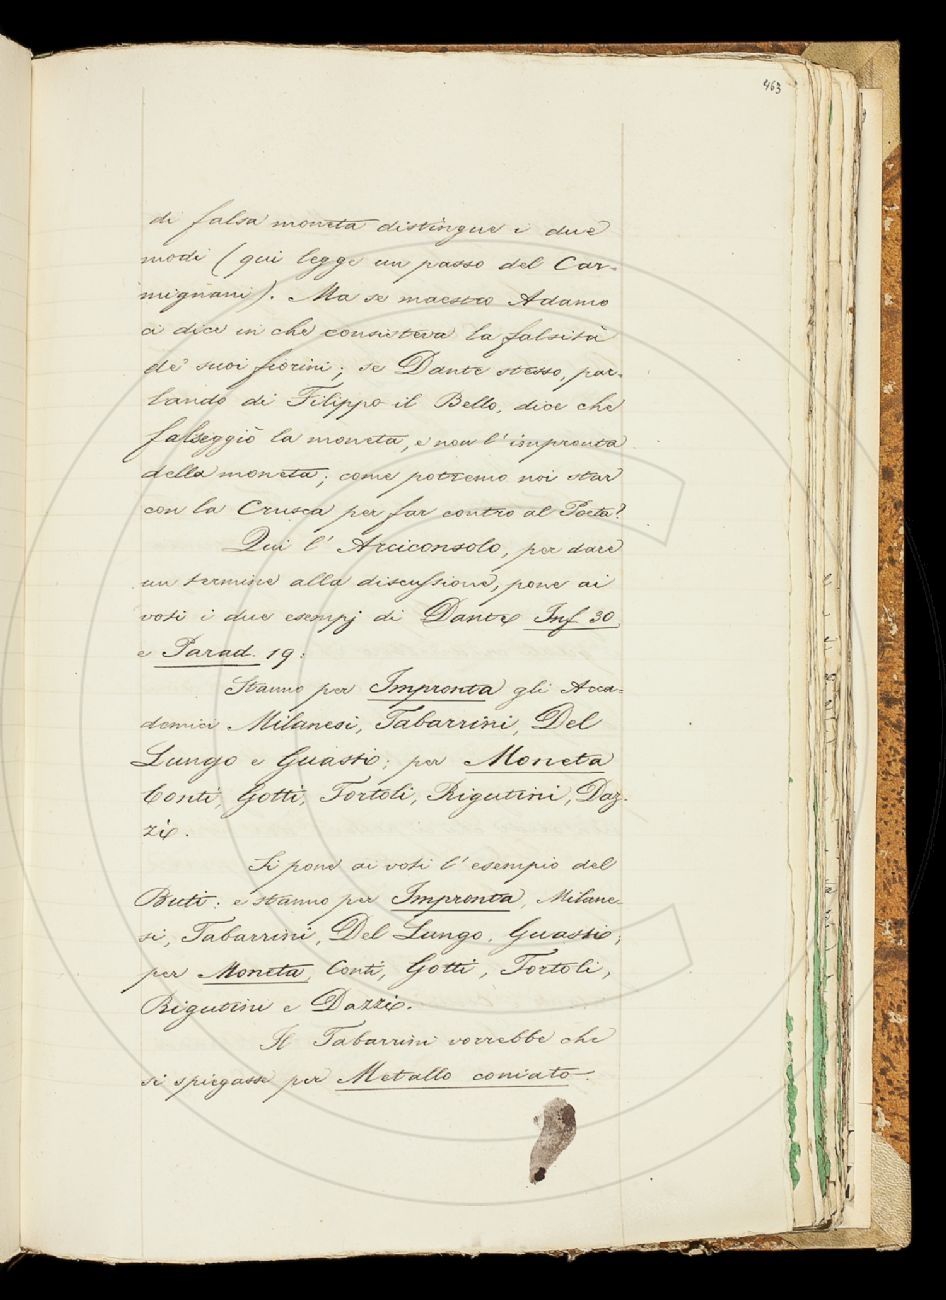 463
di falsa moneta distingue i due
modi (qui legge un passo del Car-
mignani). Ma se maestro Adamo
ci dice in che consisteva la falsità
de' suoi fiorini; se Dante stesso, par-
lando di Filippo il Bello, dice che
falseggiò la moneta, e non l'impronta
della moneta; come potremo noi star
con la Crusca per far contro al Poeta?
Qui l'Arciconsolo, per dare
un termine alla discussione, pone ai
voti i due esempj di Dante Inf 30
e Parad. 19:
Stanno per Impronta gli Acca-
demici Milanesi, Tabarrini, Del
Lungo e Guasti; per Moneta
Conti, Gotti, Tortoli, Rigutini, Daz-
zi.
Si pone ai voti l'esempio del
Buti: e stanno per Impronta, Milane-
si, Tabarrini, Del Lungo, Guasti;
per Moneta, Conti, Gotti, Tortoli,
Rigutini e Dazzi.
Il Tabarrini vorrebbe che
si spiegasse per Metallo coniato.